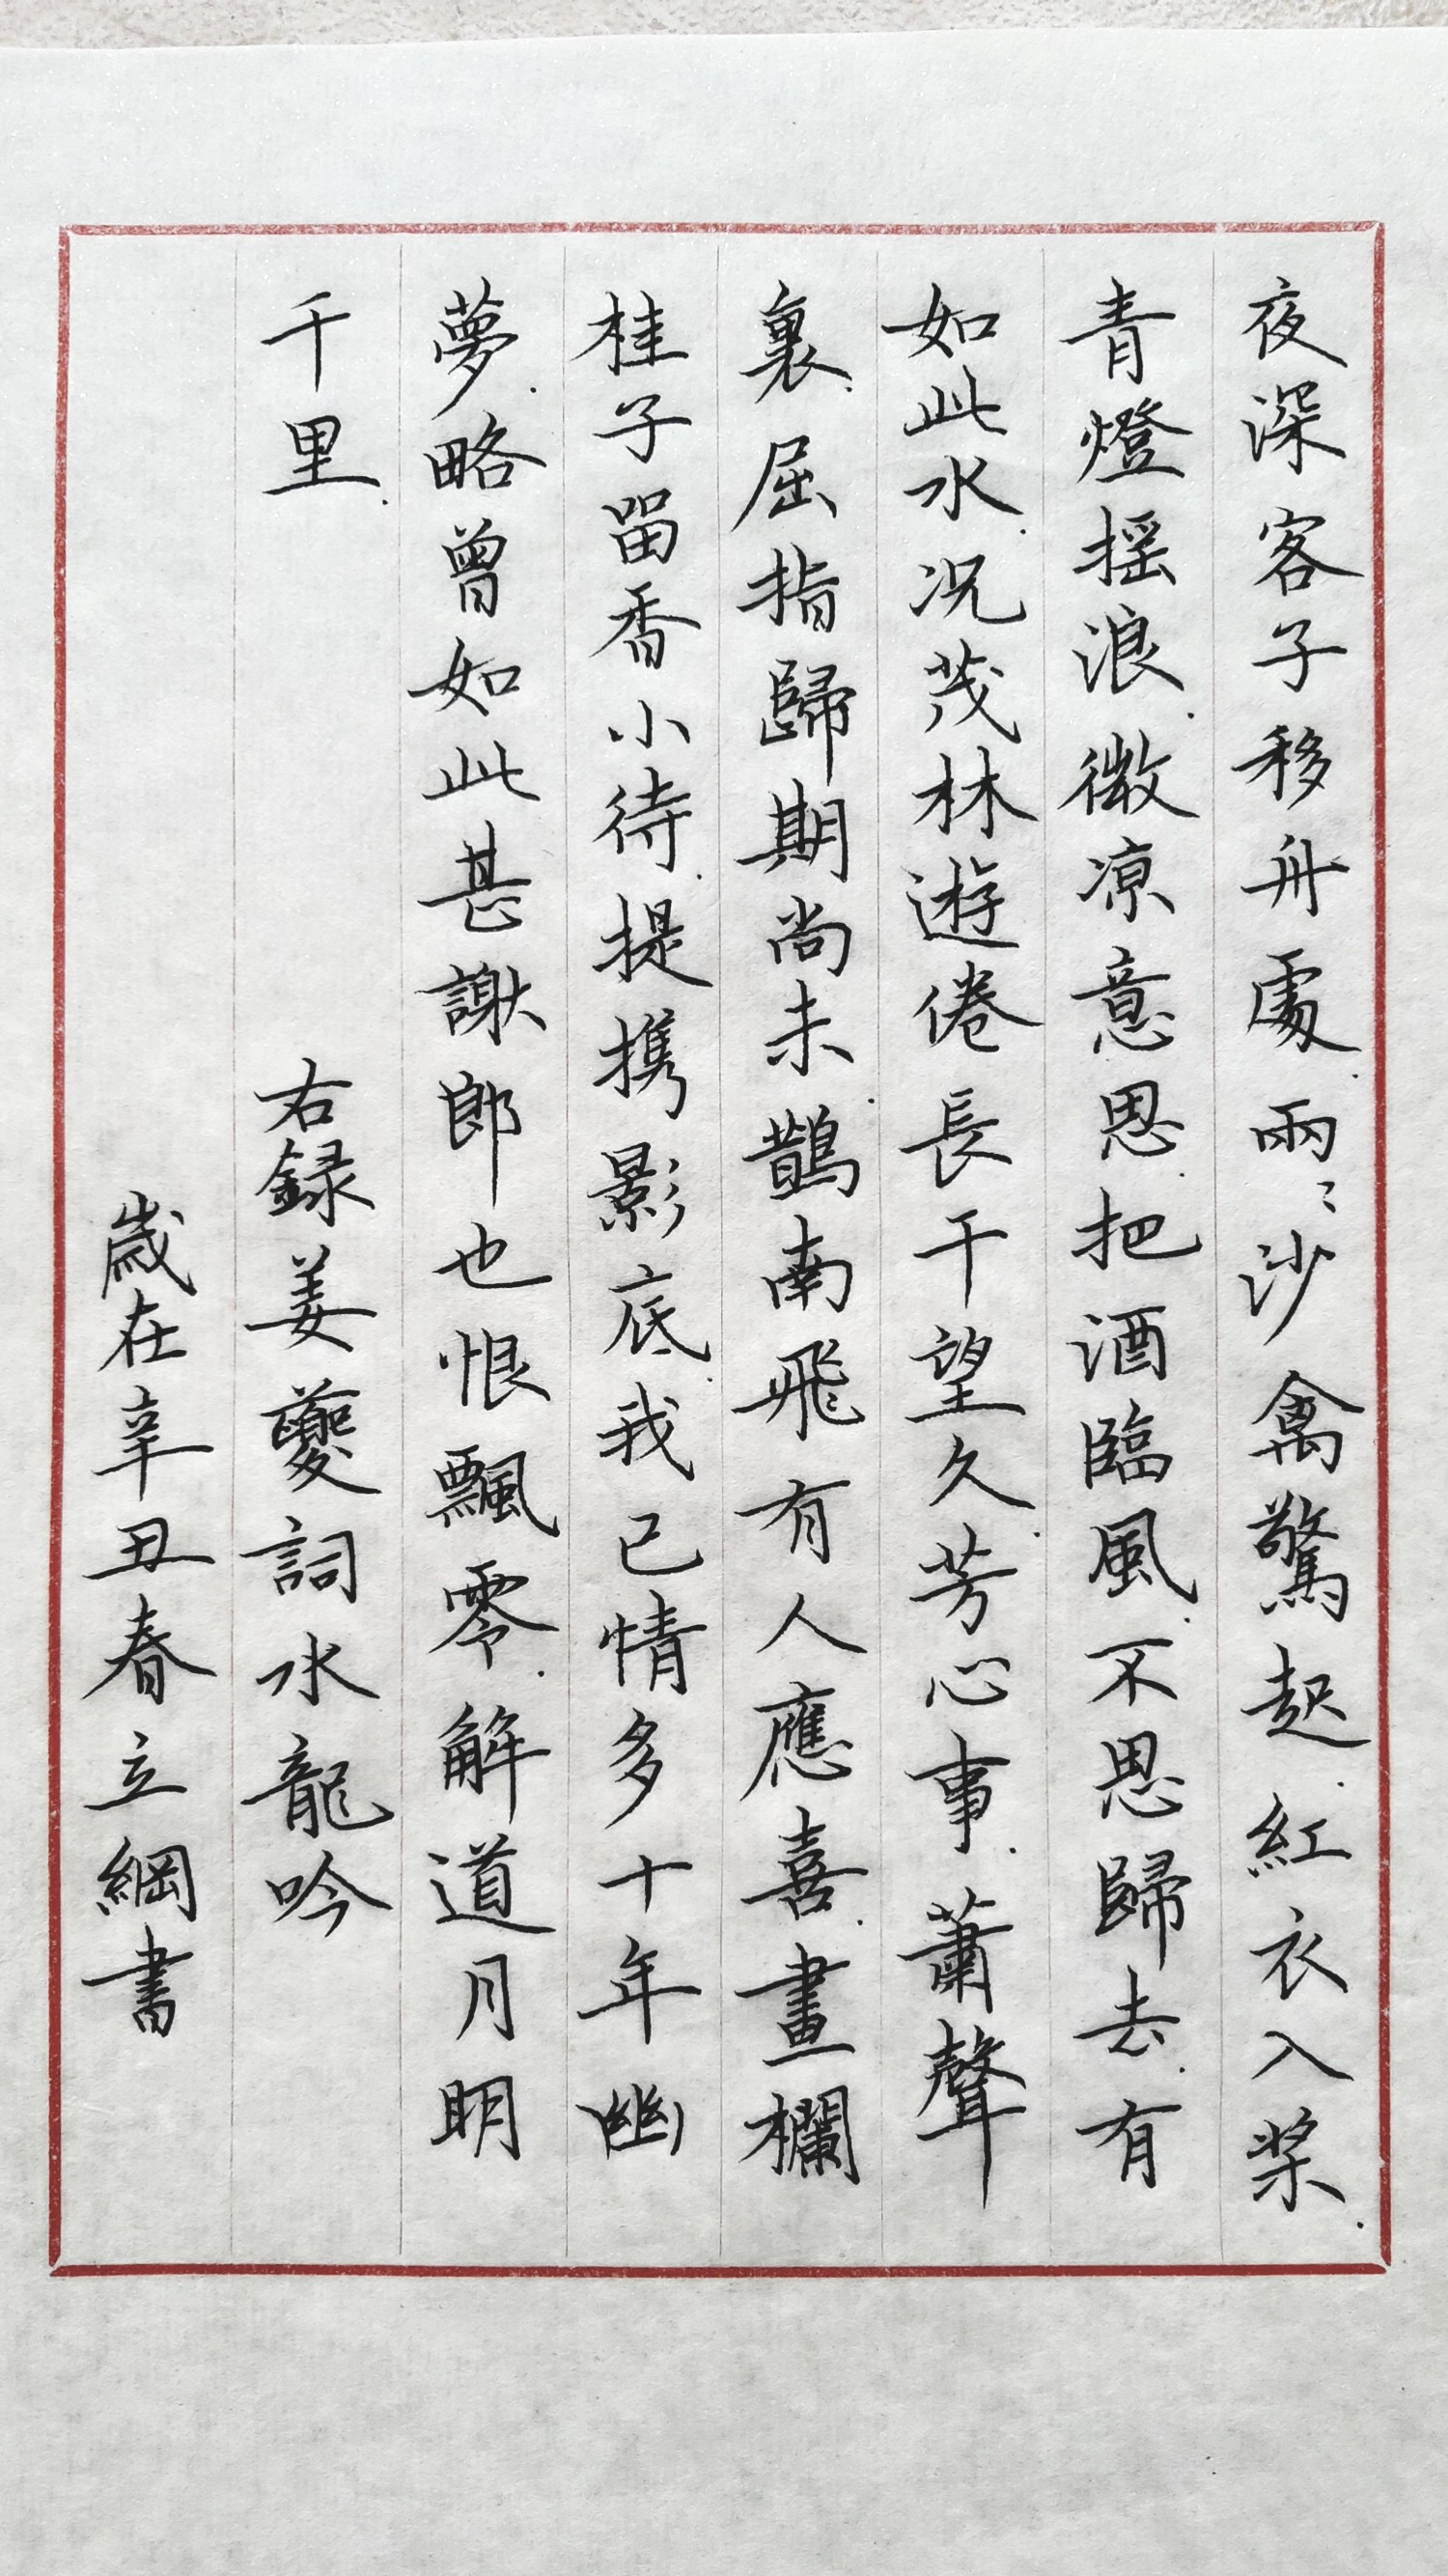 夜深客子移舟處.兩ミ沙禽驚起.紅衣入槳.
青燈摇浪.微凉意思.把酒臨風.不思歸去.有
如此水.况茂林遊倦長干望久.芳心事.蕭聲
裏.屈指歸期尚未.鵲南飛有人應喜.畫欄
桂子留香小待.提携影底.我已情多十年幽
夢.略曾如此甚謝郎也恨飄零.解道月明
千里.
右録姜夔詞水龍吟
歲在辛丑春立綱書